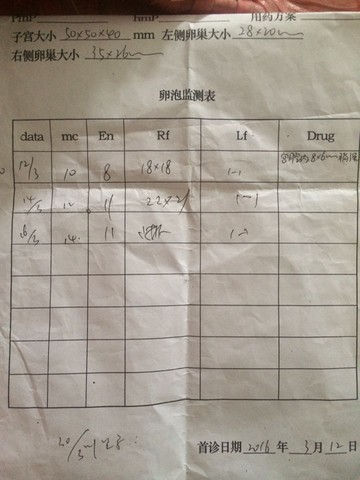 PmP hmP 用药方案
子宫大小 50×50×40 mm 左侧卵巢大小 28×20mm
右侧卵巢大小 35×26mm
卵泡监测表
data mc En Rf Lf Drug
12/3 10 8 18×18 (-)
14/3 12 11 22×21 (-)
16/3 14 11 (-)
20/3
首诊日期 2016 年 3 月 12 日